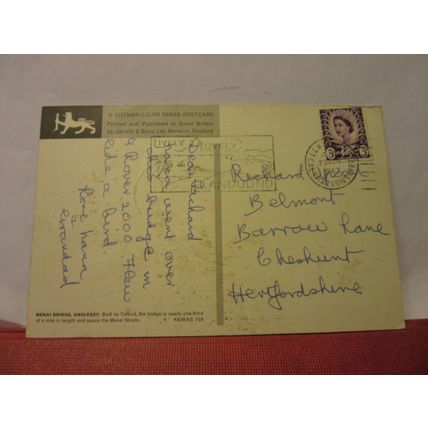 A COTMAN-COLOR SERIES POSTCARD
Printed and Published in Great Britain
by Jarrold & Sons Ltd, Norwich, England
LOVELY
LLANDUDNO
Dear Richard
went over
this bridge in
a Rover 2000. Flew
like a bird.
Love Nana
&
Grandad
Richard
Belmont
Barrow Lane
Cheshunt
Hertfordshire
MENAI BRIDGE, ANGLESEY. Built by Telford, the bridge is nearly one-third
of a mile in length and spans the Menai Straits.
KNWAS 109